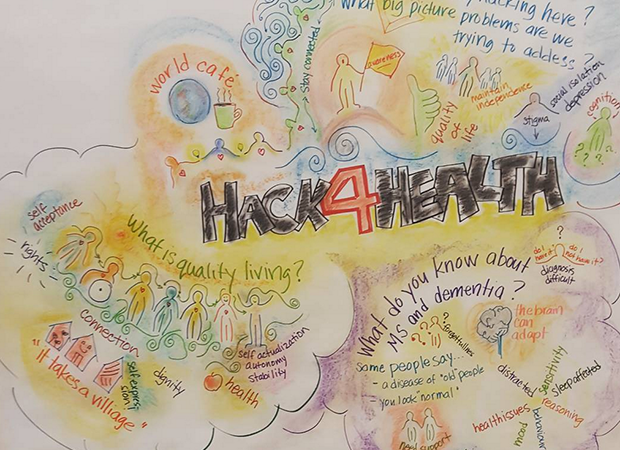 hacking here?
What big picture
problems are we
trying to address?
stay connected
awareness
world café
maintain
independence
quality
of
life
stigma
social isolation
depression
cognition
HACK4HEALTH
self
acceptance
rights
What is quality living?
connection
"It takes a village"
self expres
sion
dignity
self actualization
autonomy
stability
health
What do you know about
MS and dementia?
do I
have it?
do I
not have it?
?
diagnosis
difficult
forgetfullness
the brain
can
adapt
some people say...
- a disease of "old" people
- you look "normal"
distracted
sensitivity
sleep affected
reasoning
health issues
mood
behaviour
need support